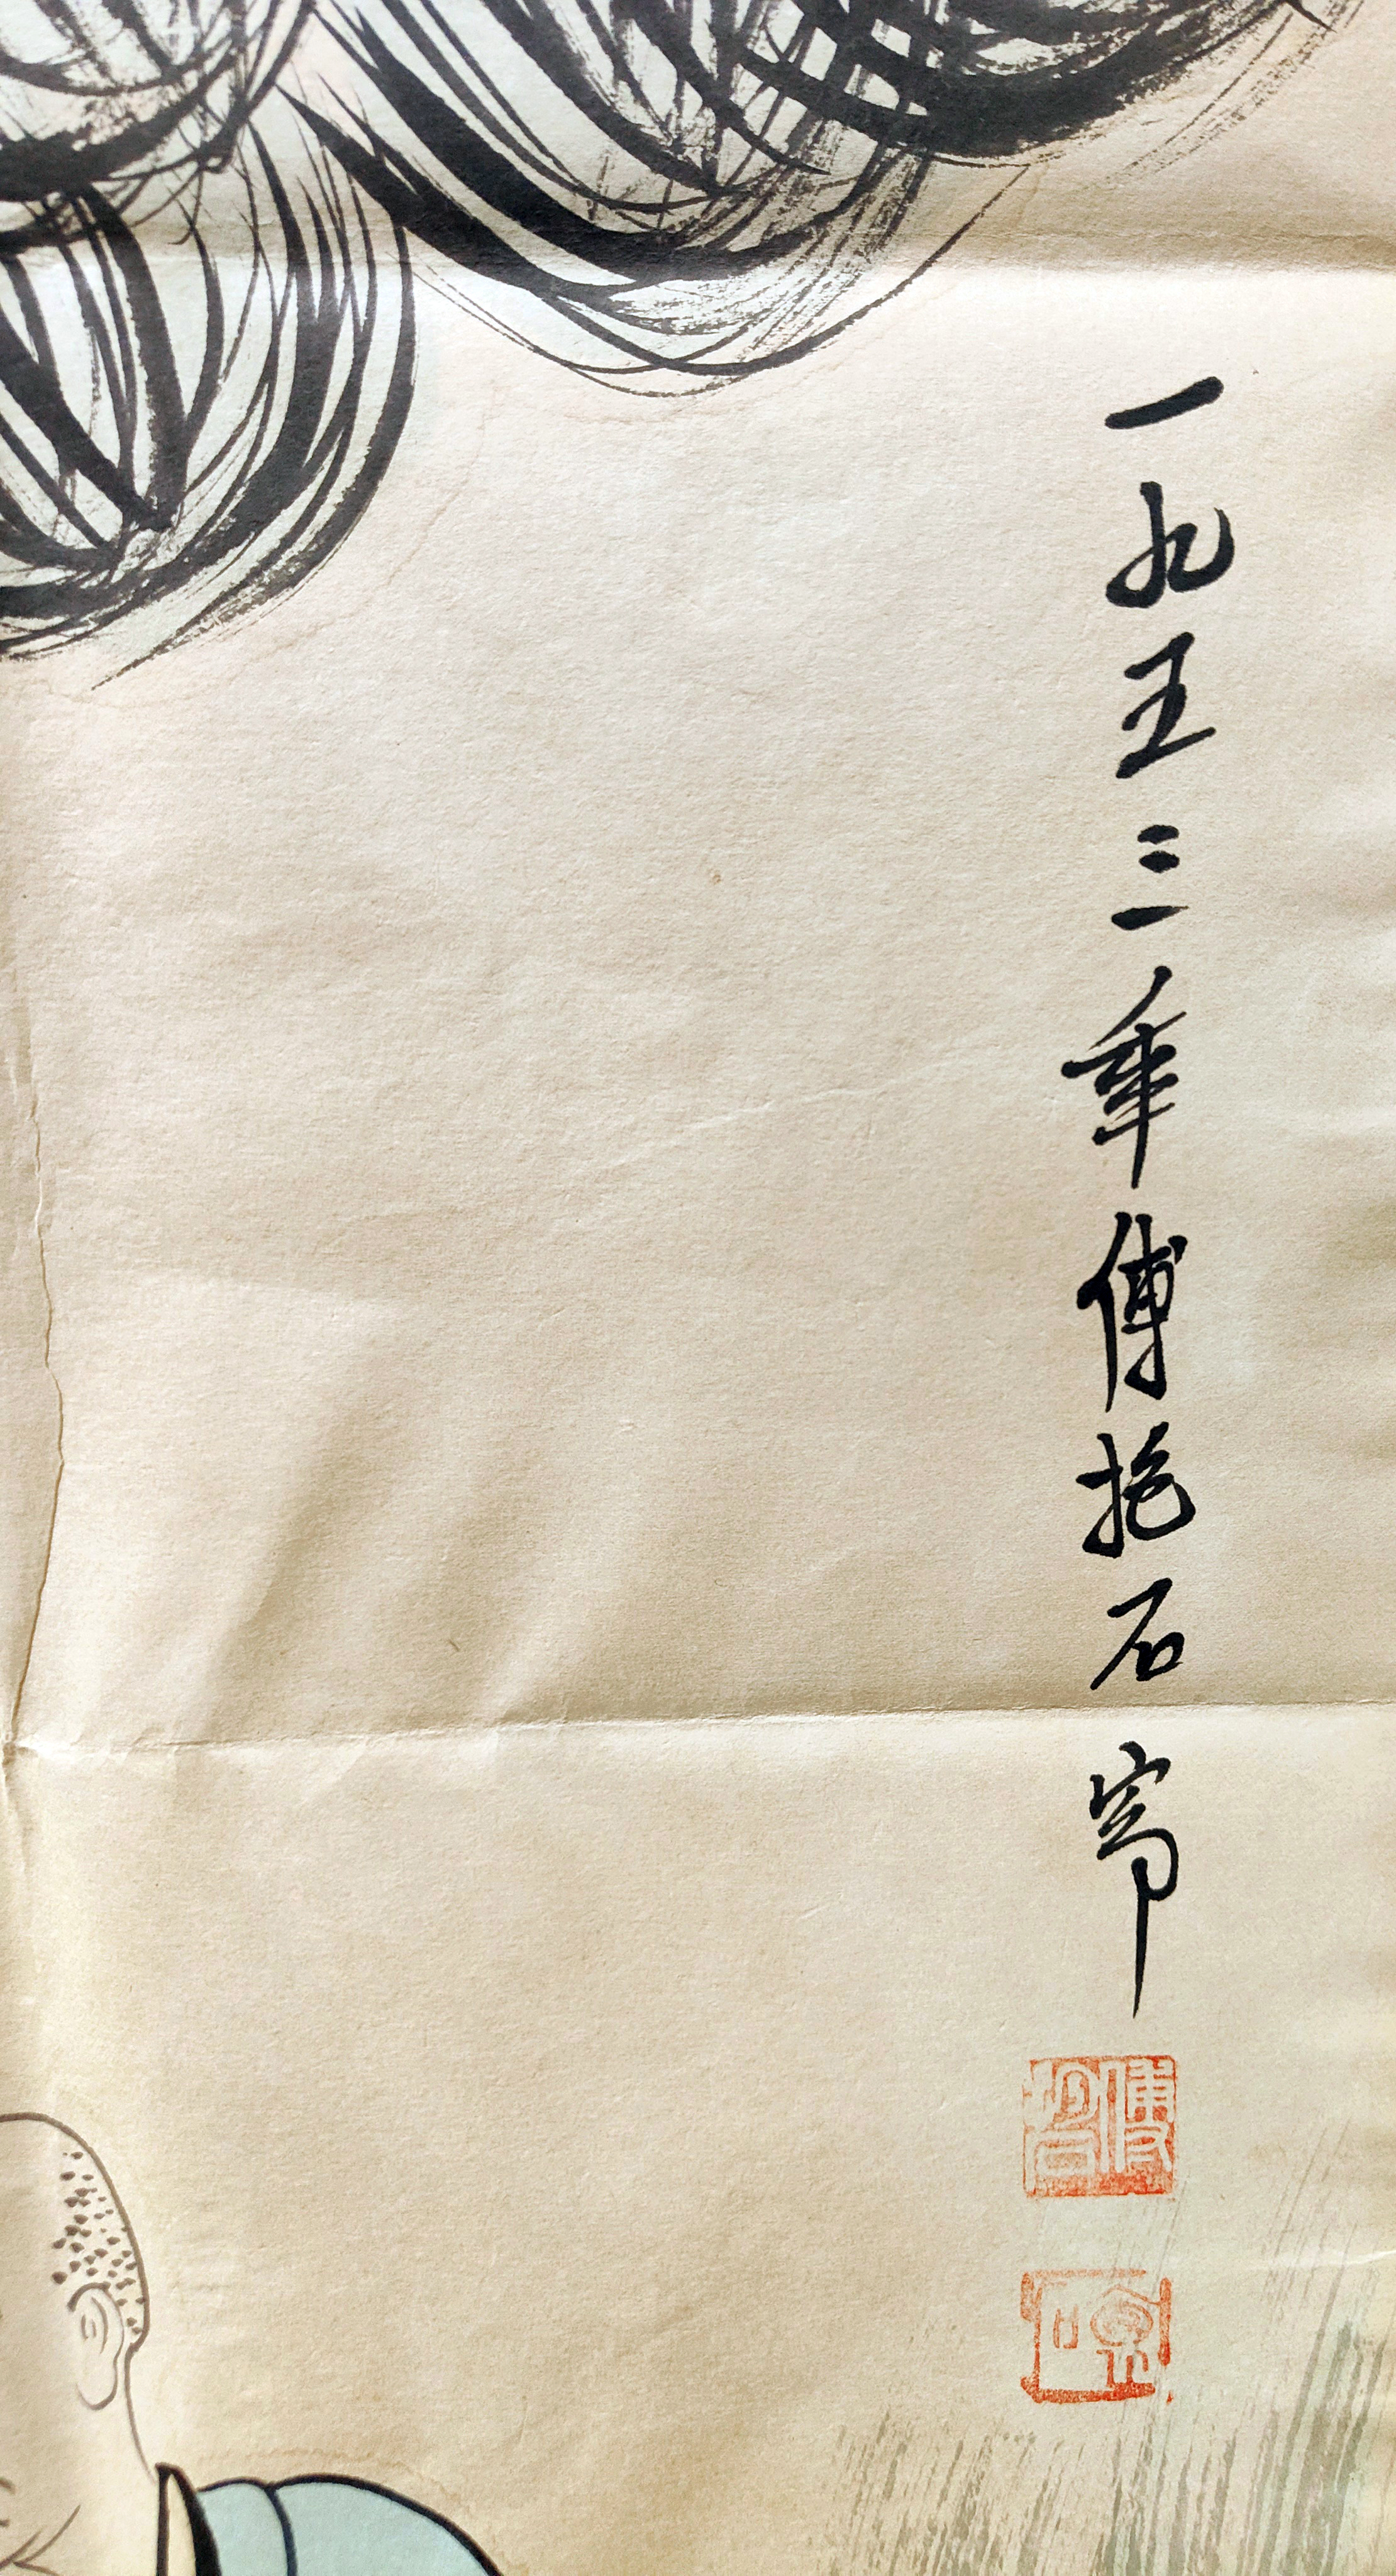 一九五三年傅抱石寫
傅抱石